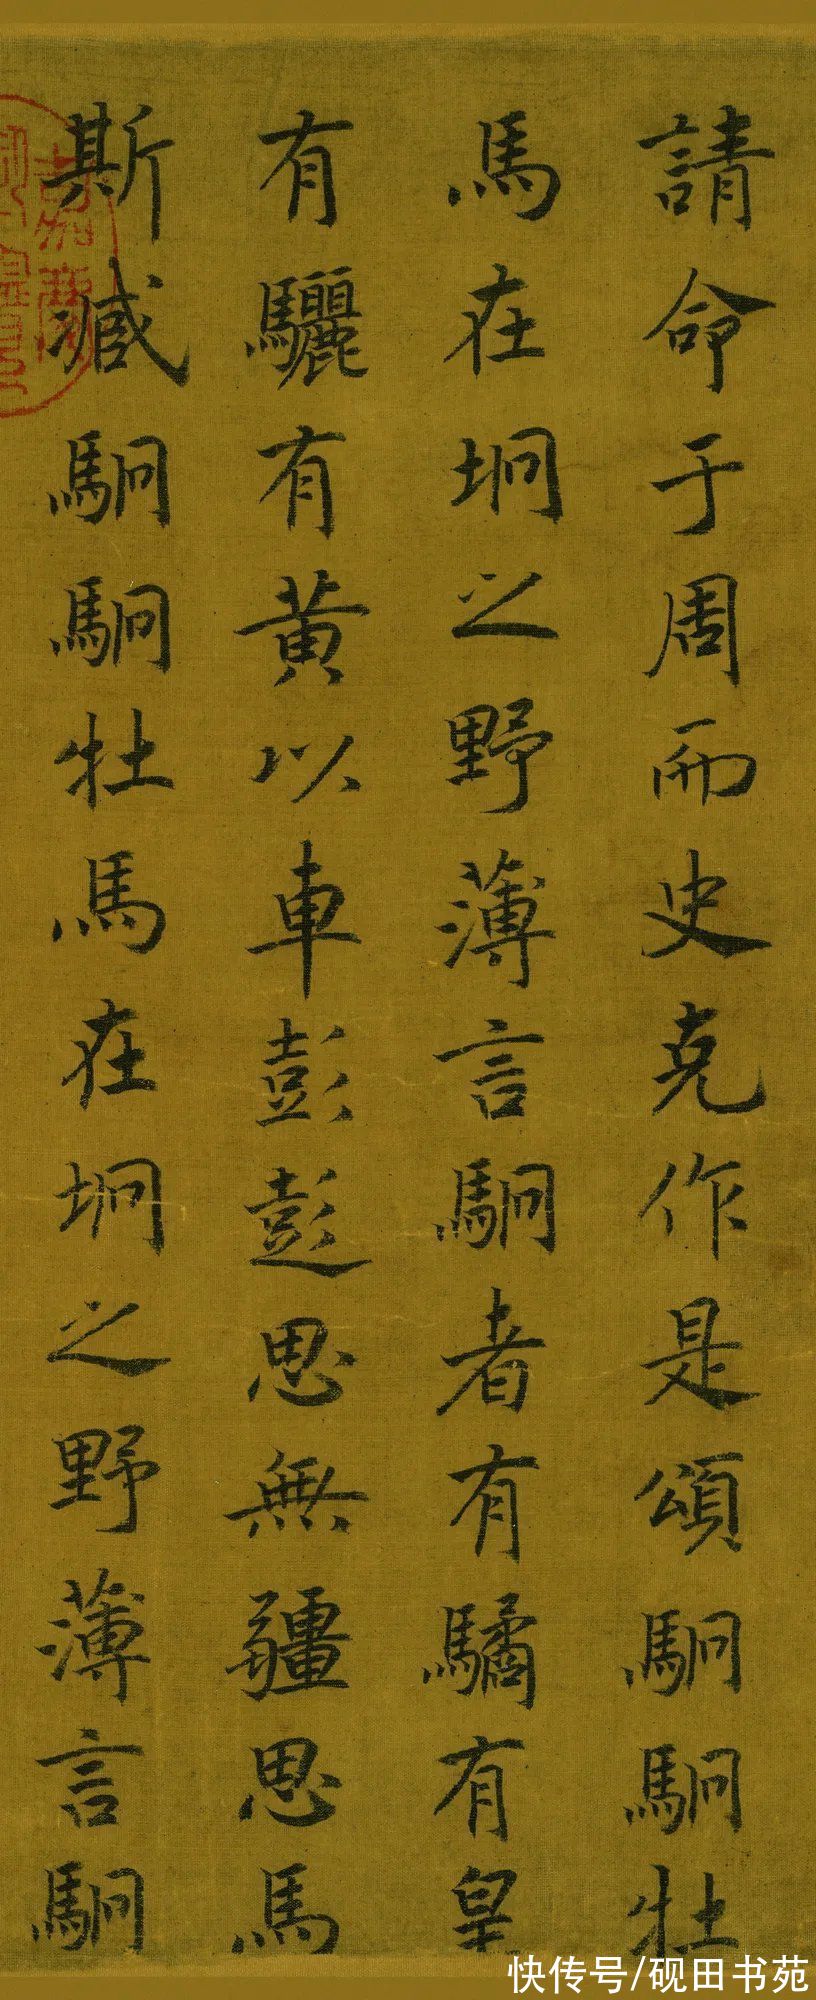 請命于周而史克作是頌駉駉牡
馬在坰之野薄言駉者有驈有皇
有驪有黃以車彭彭思無疆思馬
斯臧駉駉牡馬在坰之野薄言駉
快传号/砚田书苑